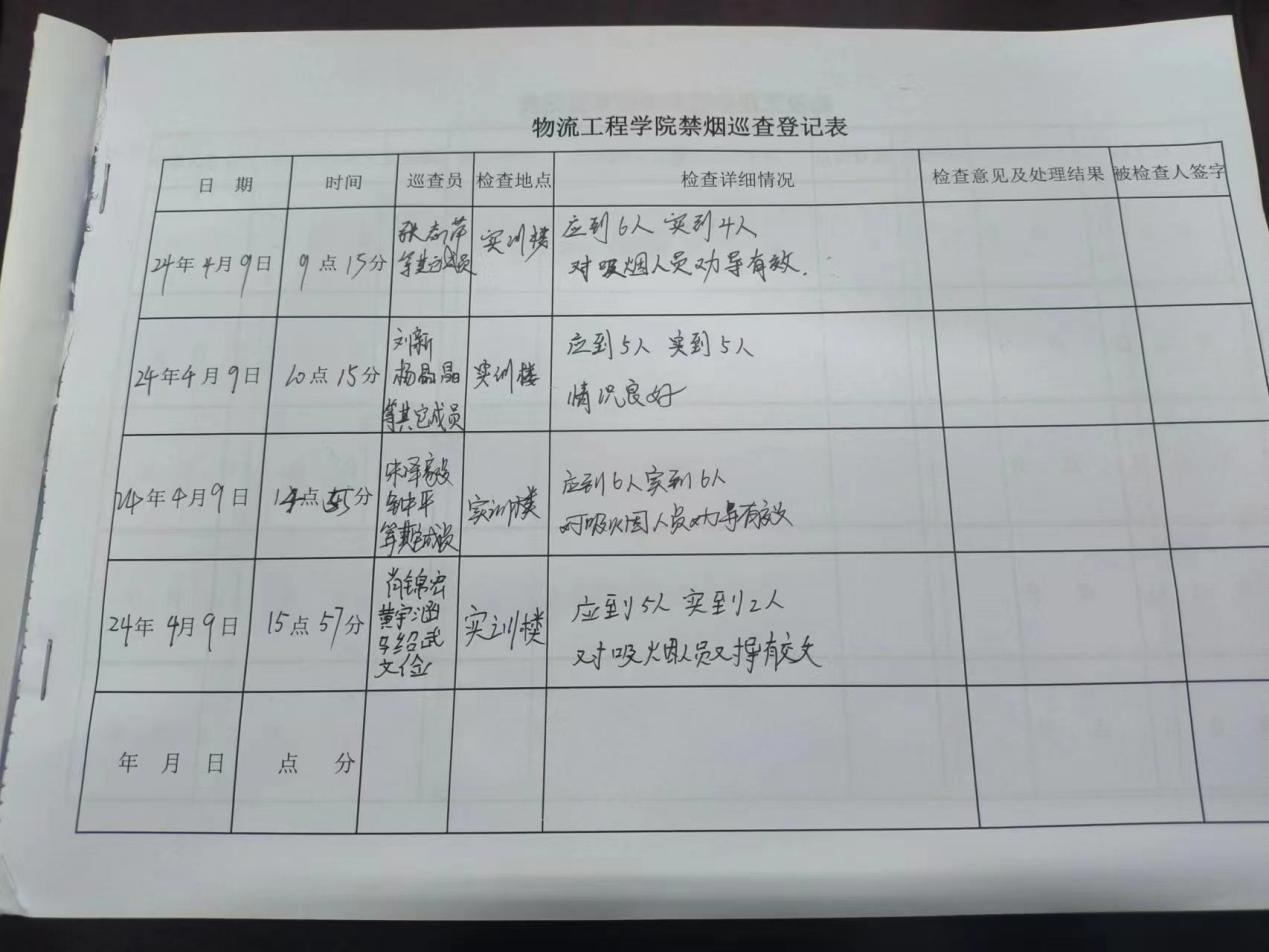 物流工程学院禁烟巡查登记表
日 期 时间 巡查员 检查地点 检查详细情况 检查意见及处理结果 被检查人签字
24年4月9日 9点15分 实训楼 应到6人 实到4人
对吸烟人员劝导有效.
24年4月9日 10点15分 刘新 实训楼 应到5人 实到5人
杨晶晶 情况良好
等其它成员
24年4月9日 点 分 实训楼 应到6人实到6人
对吸烟人员劝导有效
24年4月9日 15点57分 肖锦宏 实训楼 应到5人 实到2人
黄宇涵 对吸烟人员 导有效
绍武
文俭
年 月 日 点 分